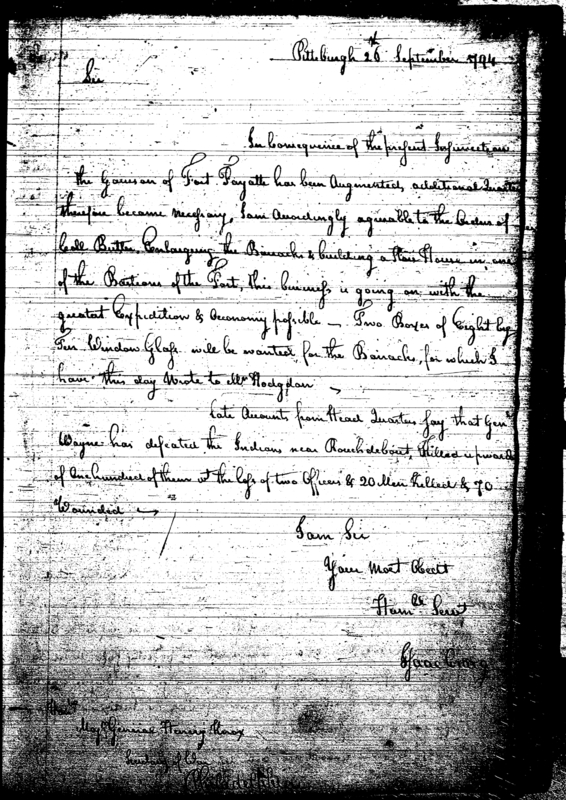 Pittsburgh 26th September 1794
Sir
In Consequence of the present Insurrection
the Garrison of Fort Fayatte has been Augmented, additional Quarters
therefore became necessary, I am Accordingly agreeable to the Orders of
Coll. Butler, Enlarging the Barracks & building a Store House in one
of the Bastions of the Fort, this business is going on with the
greatest Expedition & Oeconomy possible — Two Boxes of Eight by
Ten Window Glass will be wanted for the Barracks, for which I
have this day Wrote to Mr Hodgdon
Late Accounts from Head Quarters say that Genl
Wayne has defeated the Indians near Rouch debout, Killed upwards
of One hundred of them wt the loss of two Officers & 20 Men Killed & 70
Wounded
I am Sir
Your Most Obedt
Humle Servt
Isaac Craig
Majr General Henry Knox
Secretary of War
Philadelphia